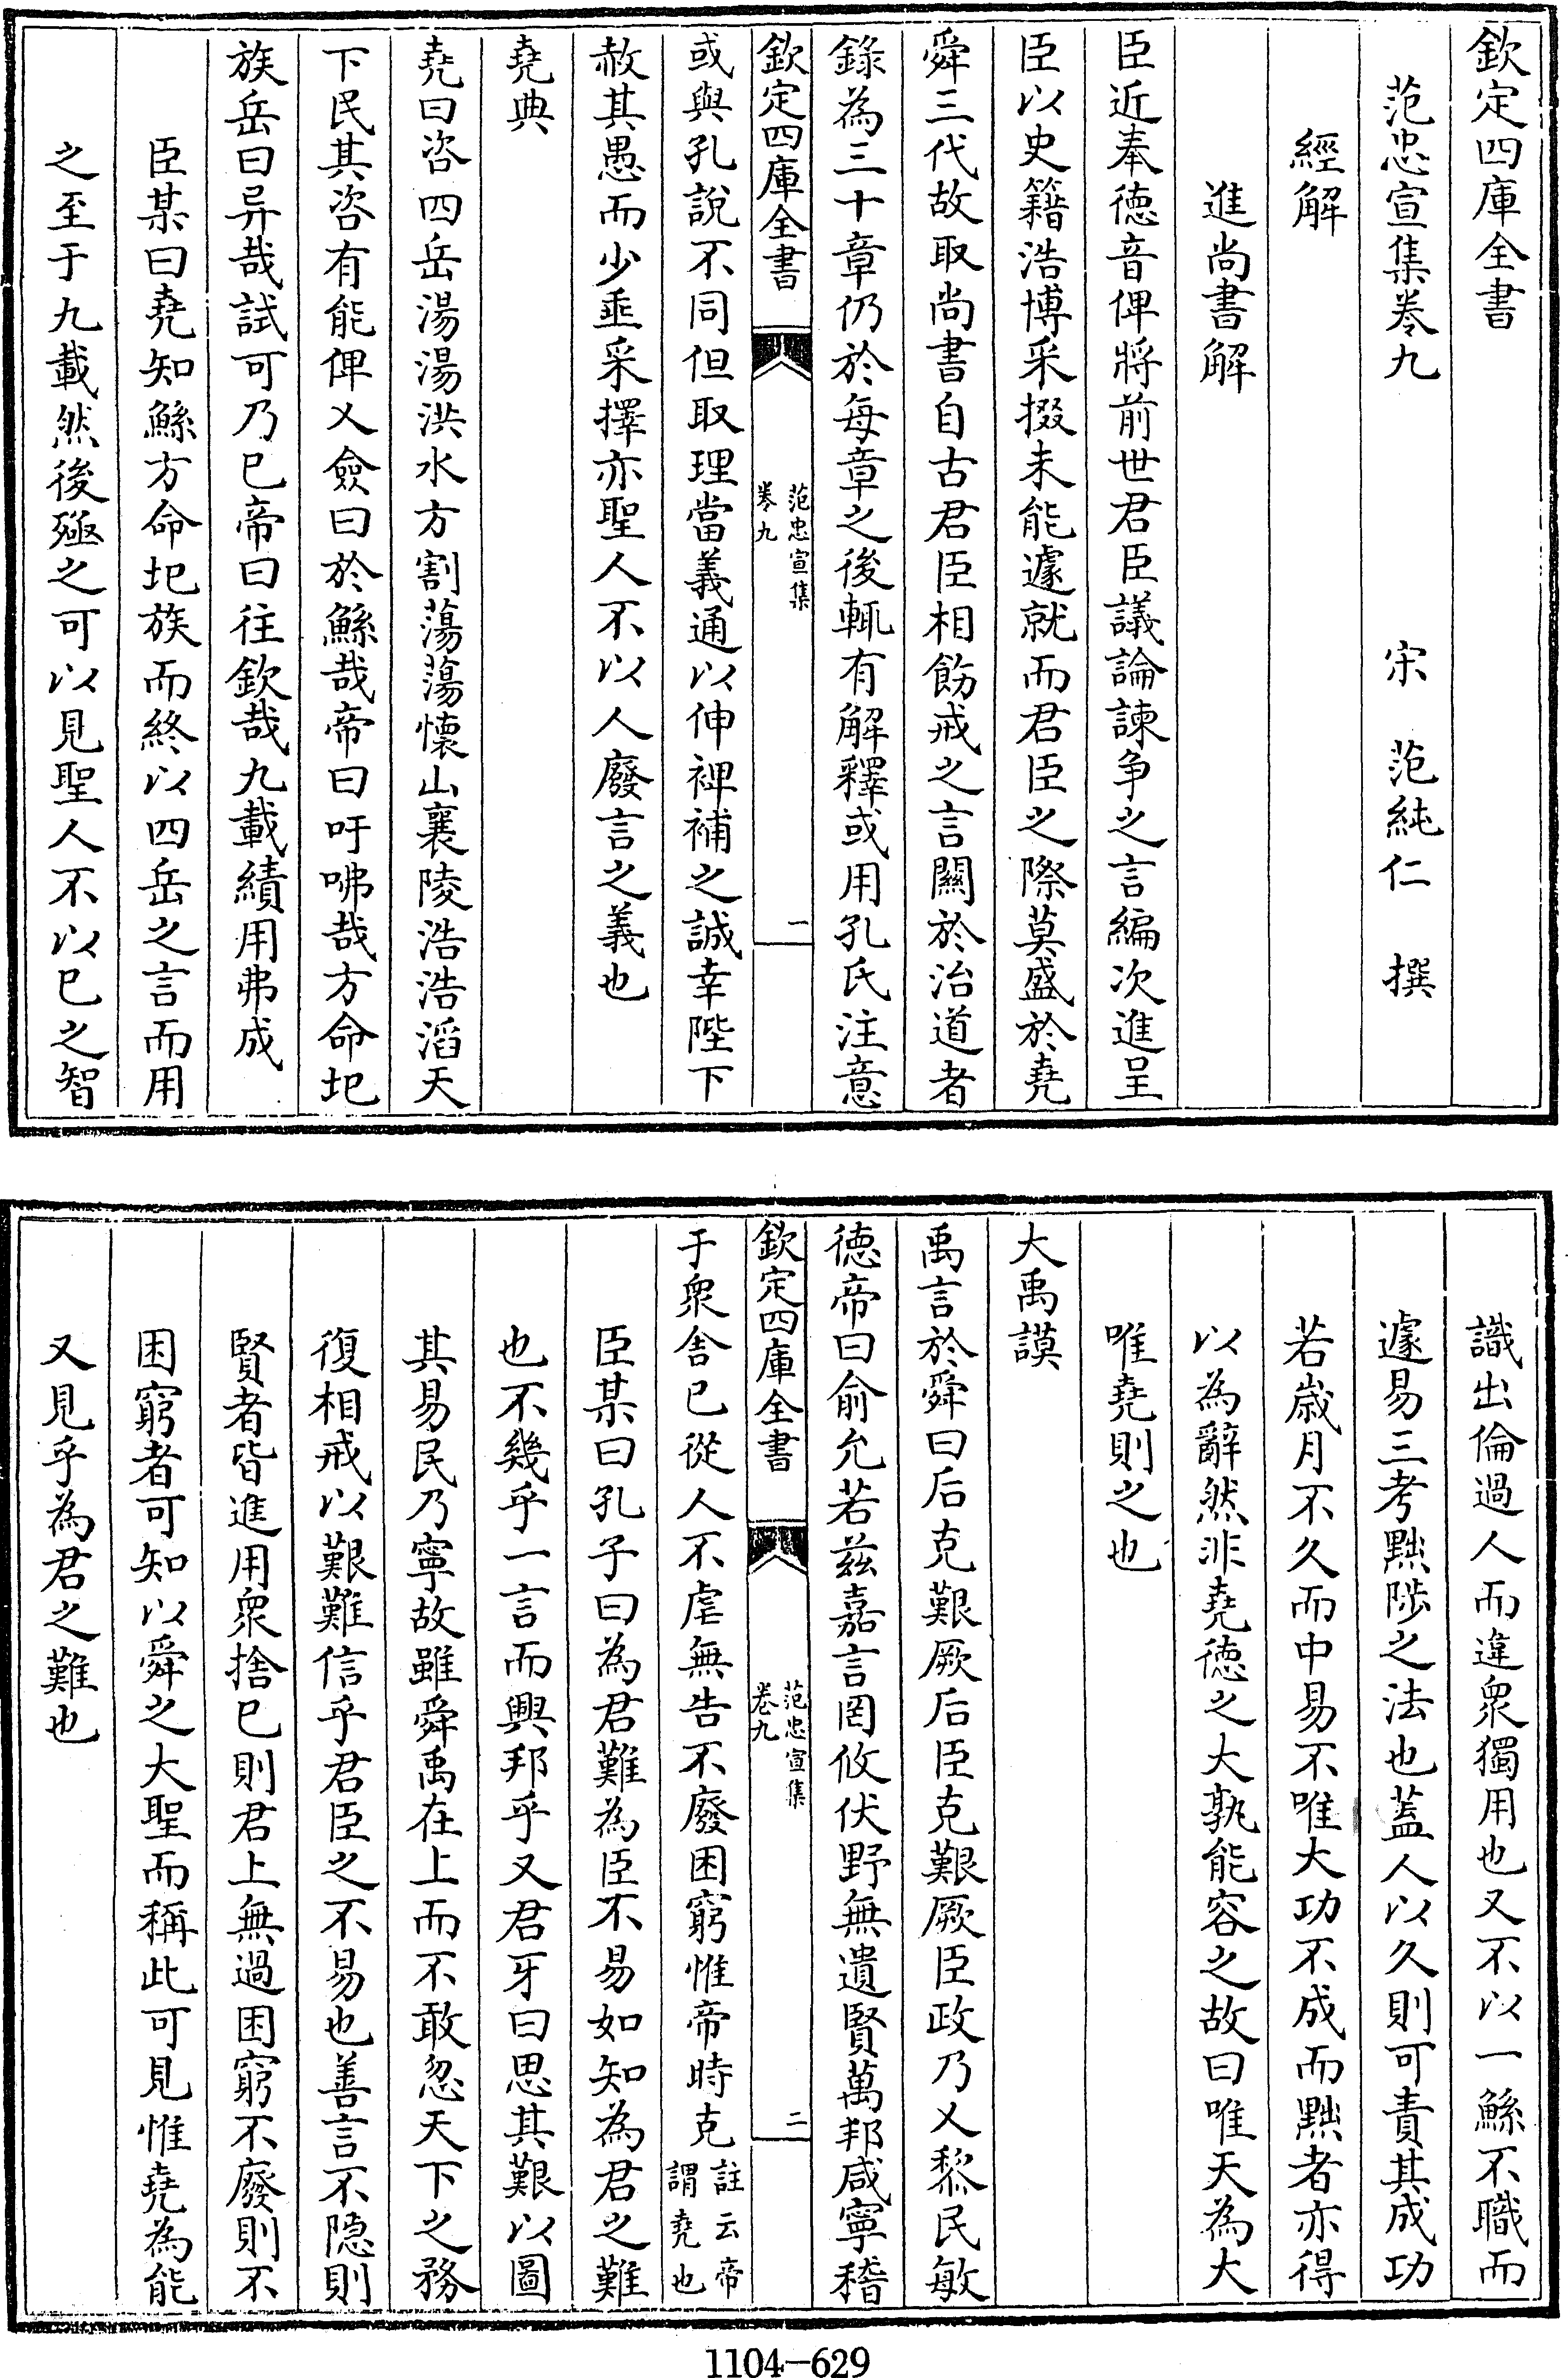 欽定四庫全書
范忠宣集卷九
宋 范純仁 撰
經解
進尚書解
臣近奉德音俾將前世君臣議論諫争之言編次進呈
臣以史籍浩博采掇未能遽就而君臣之際莫盛於堯
舜三代故取尚書自古君臣相飭戒之言關於治道者
錄為三十章仍於每章之後輒有解釋或用孔氏注意
欽定四庫全書
范忠宣集
卷九
一
或與孔說不同但取理當義通以伸裨補之誠幸陛下
赦其愚而少垂采擇亦聖人不以人廢言之義也
堯典
堯曰咨四岳湯湯洪水方割蕩蕩懷山襄陵浩浩滔天
下民其咨有能俾乂僉曰於鯀哉帝曰吁咈哉方命圮
族岳曰异哉試可乃已帝曰往欽哉九載績用弗成
臣某曰堯知鯀方命圮族而終以四岳之言而用
之至于九載然後殛之可以見聖人不以已之智
識出倫過人而違衆獨用也又不以一鯀不職而
遽易三考黜陟之法也蓋人以久則可責其成功
若歲月不久而中易不唯大功不成而黜者亦得
以為辭然非堯德之大孰能容之故曰唯天為大
唯堯則之也
大禹謨
禹言於舜曰后克艱厥后臣克艱厥臣政乃乂黎民敏
德帝曰俞允若兹嘉言罔攸伏野無遺賢萬邦咸寧稽
欽定四庫全書
范忠宣集
卷九
二
于衆舍已從人不虐無告不廢困窮惟帝時克註云帝
謂堯也
臣某曰孔子曰為君難為臣不易如知為君之難
也不幾乎一言而興邦乎又君牙曰思其艱以圖
其易民乃寧故雖舜禹在上而不敢忽天下之務
復相戒以艱難信乎君臣之不易也善言不隠則
賢者皆進用衆捨已則君上無過困窮不廢則不
困窮者可知以舜之大聖而稱此可見惟堯為能
又見乎為君之難也
1104-629